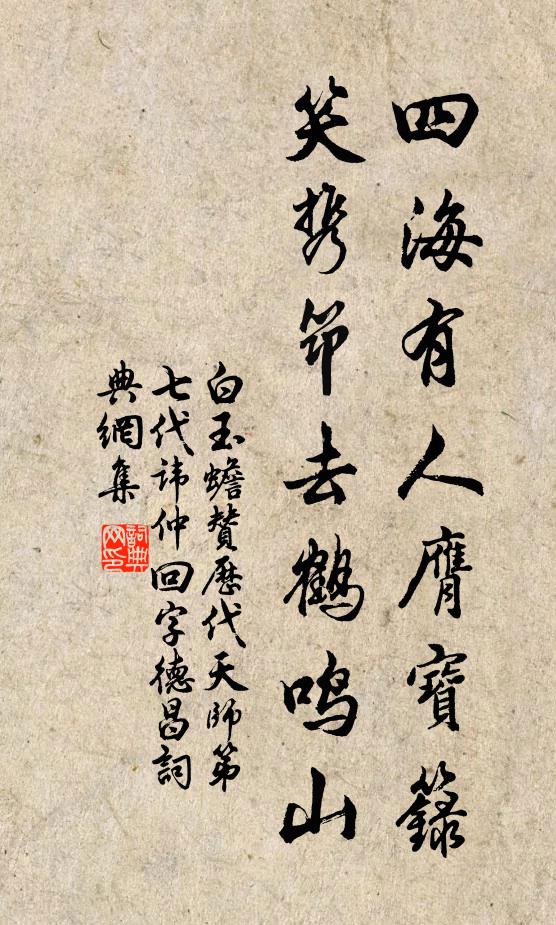 四海有人膺寶籙
笑携笻去鶴鳴山
白玉蟾贊歷代天師第
七代諱仲回字德昌詞
典網集
詞典網印